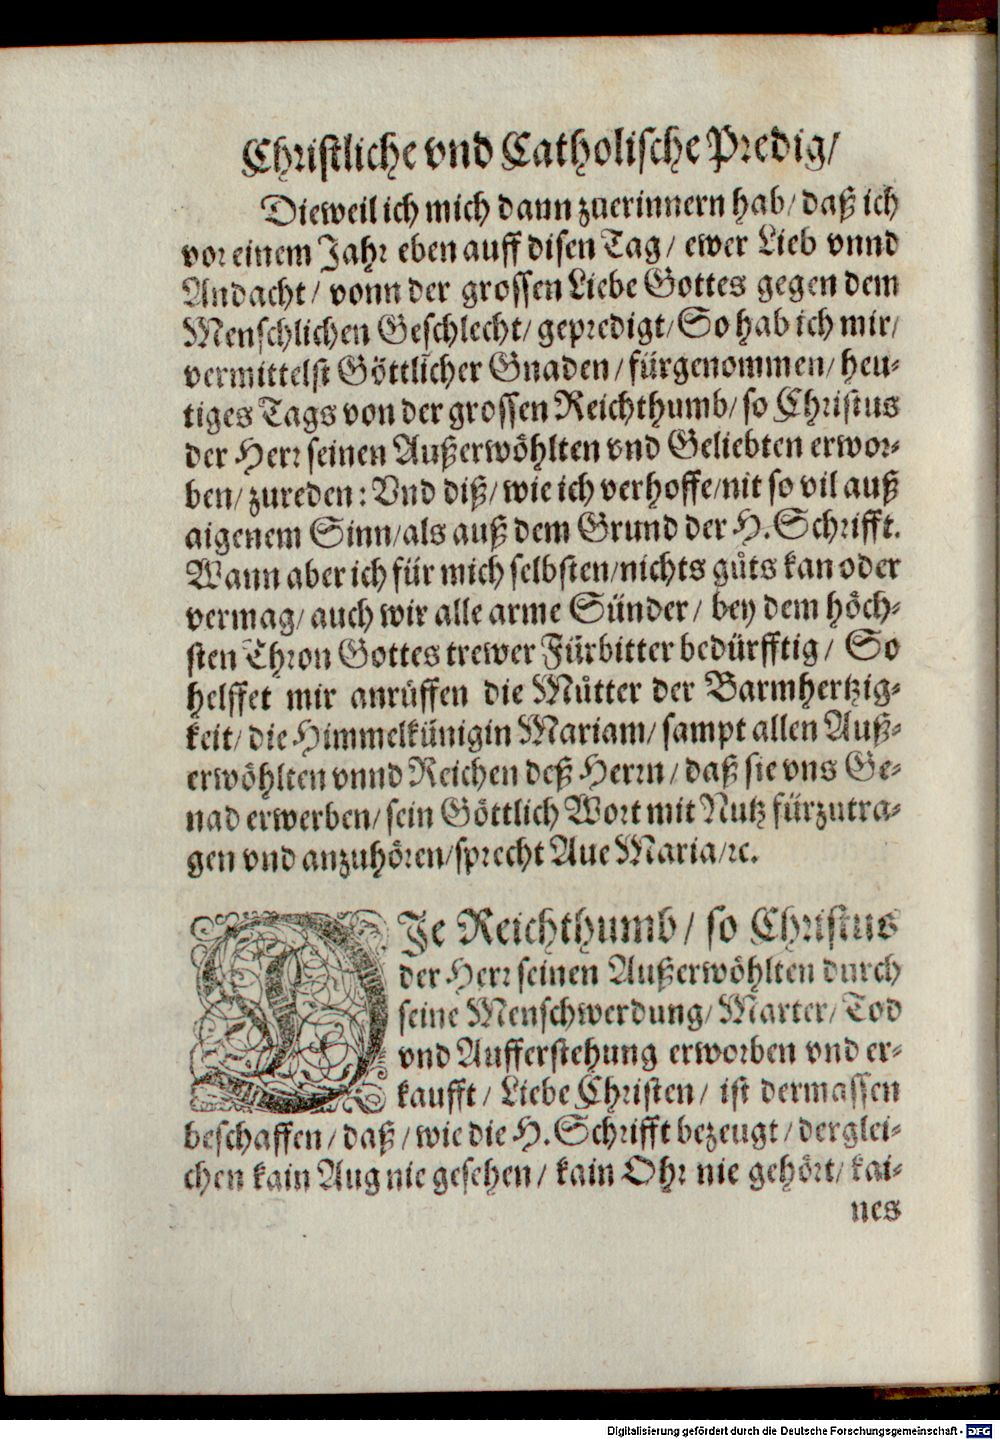 Christliche vnd Catholische Predig/
Dieweil ich mich dann zuerinnern hab/ daß ich
vor einem Jahr eben auff disen Tag/ ewer Lieb vnnd
Andacht/ vonn der grossen Liebe Gottes gegen dem
Menschlichen Geschlecht/ gepredigt/ So hab ich mir/
vermittelst Göttlicher Gnaden/ fürgenommen/ heu-
tiges Tags von der grossen Reichthumb/ so Christus
der Herr seinen Außerwöhlten vnd Geliebten erwor-
ben/ zureden: Vnd diß/ wie ich verhoffe/ nit so vil auß
aigenem Sinn/ als auß dem Grund der H. Schrifft.
Wann aber ich für mich selbsten/ nichts gůts kan oder
vermag/ auch wir alle arme Sünder/ bey dem höch-
sten Thron Gottes trewer Fürbitter bedürfftig/ So
helffet mir anrůffen die Můtter der Barmhertzig-
keit/ die Himmelkünigin Mariam/ sampt allen Auß-
erwöhlten vnnd Reichen deß Herrn/ daß sie vns Ge-
nad erwerben/ sein Göttlich Wort mit Nutz fürzutra-
gen vnd anzuhören/ sprecht Aue Maria/ ꝛc.
DIe Reichthumb/ so Christus
der Herr seinen Außerwöhlten durch
seine Menschwerdung/ Marter/ Tod
vnd Aufferstehung erworben vnd er-
kaufft/ Liebe Christen/ ist dermassen
beschaffen/ daß/ wie die H. Schrifft bezeugt/ derglei-
chen kain Aug nie gesehen/ kain Ohr nie gehört/ kai-
nes
Digitalisierung gefördert durch die Deutsche Forschungsgemeinschaft - DFG